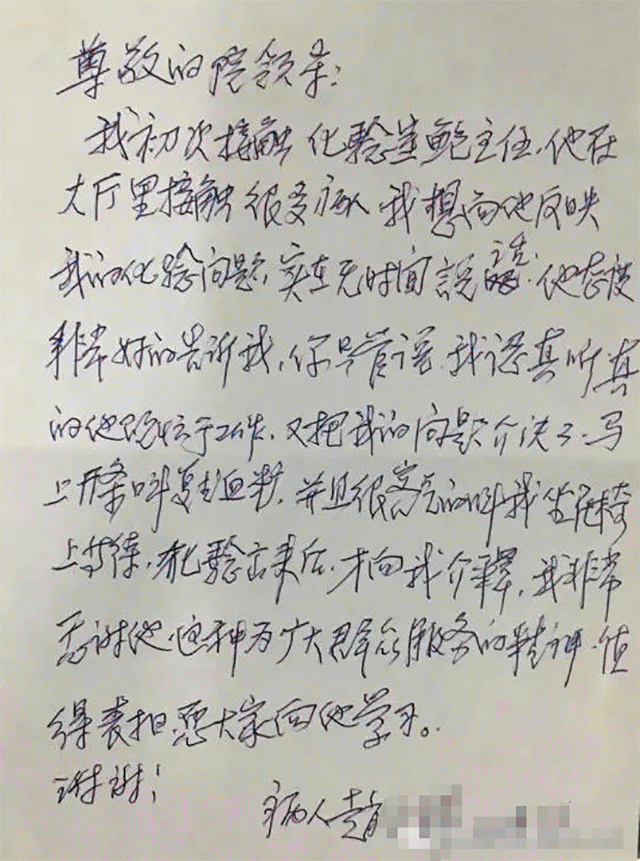 尊敬的院领导：
我初次接触化验室鲍主任，他在
大厅里接触很多病人我想向他反映
我的化验问题，实在无时间説话，他态度
非常好的告诉我，你只管说，我认真听，真
的他既工作，又把我的问题介决了，马
上开条叫复查血粘，并且很客气的叫我坐在椅
上等待，化验出来后，才向我介释，我非常
感谢他这种为广大群众服务的精神，值
得表扬愿大家向他学习。
谢谢！
病人赵